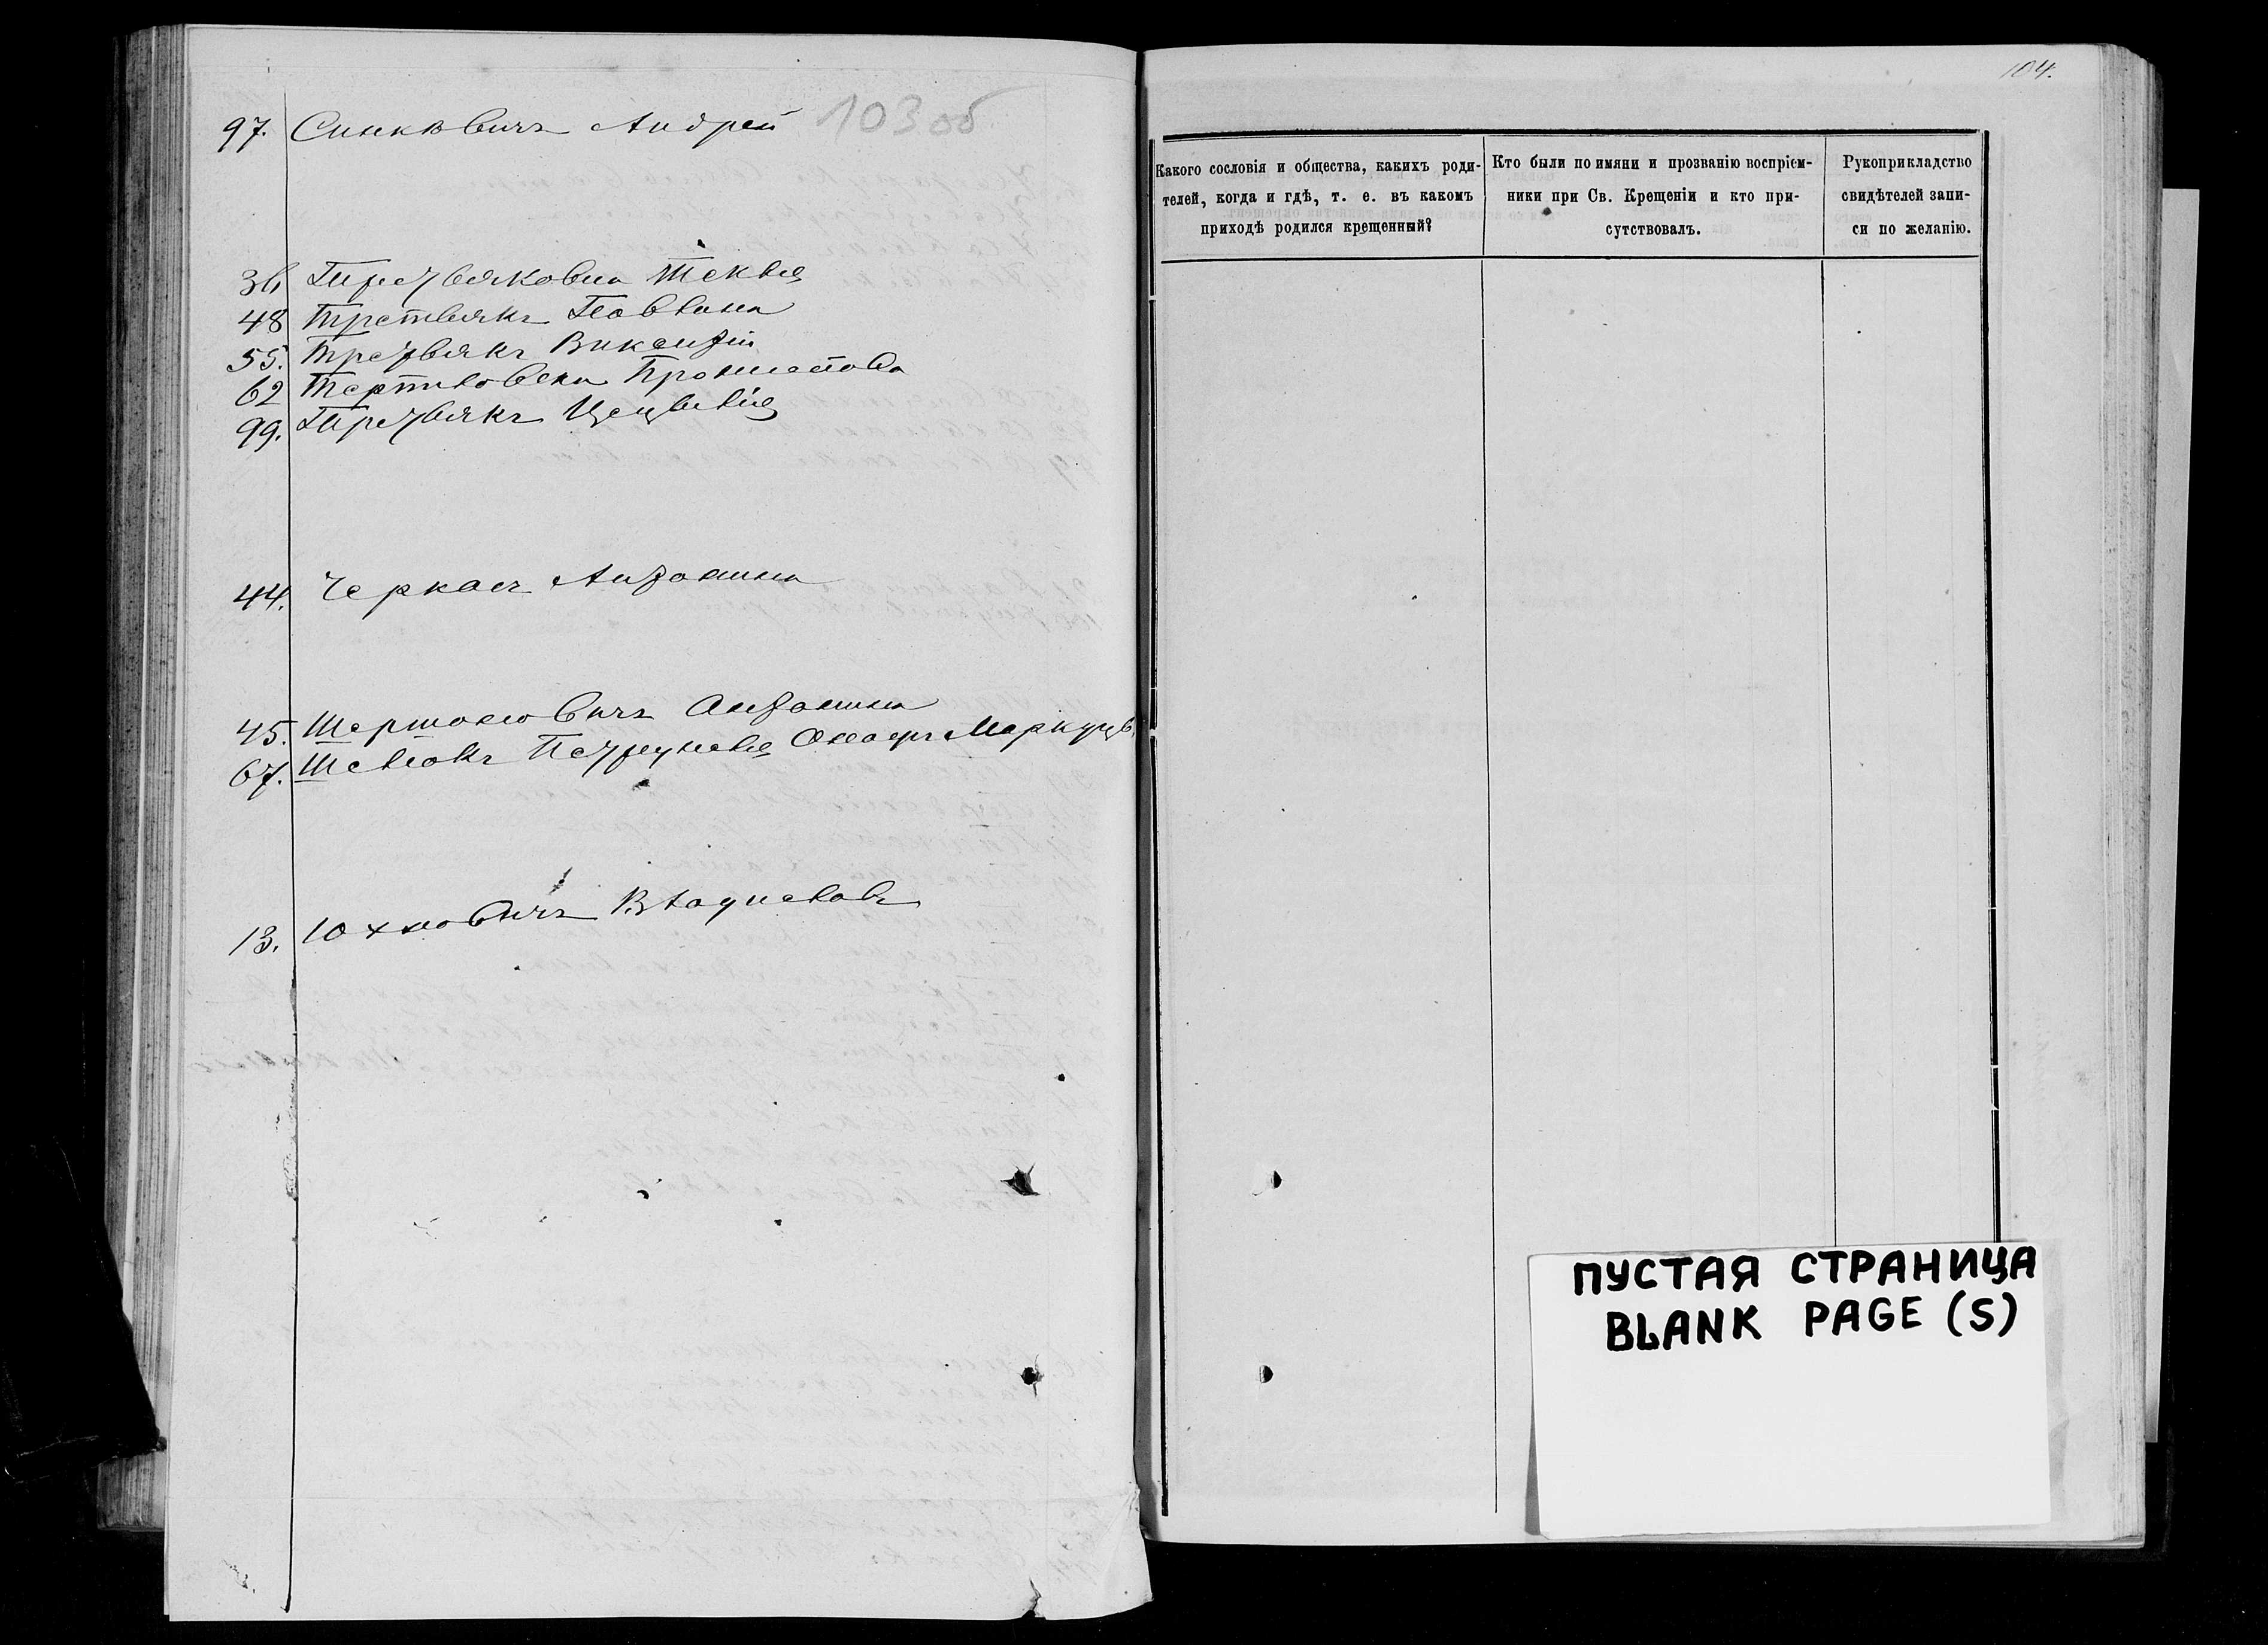 103 об
97. Синкевичъ Андрей
36 Третьяковна Текля
48 Третьякъ Павлина
55. Третьякъ Викентій
62 Терпиловска
99. Третьякъ Цецилія
44. Черкасъ Антонина
45. Шершеновичъ Антонина
67. Шевлокъ Петрунеля
13. Юхновичъ Владиславъ
104.
Какого сословія и общества, какихъ роди-
телей, когда и гдѣ, т. е. въ какомъ
приходѣ родился крещенный?
Кто были по имяни и прозванію воспріем-
ники при Св. Крещеніи и кто при-
сутствовалъ.
Рукоприкладство
свидѣтелей запи-
си по желанію.
ПУСТАЯ СТРАНИЦА
BLANK PAGE (S)